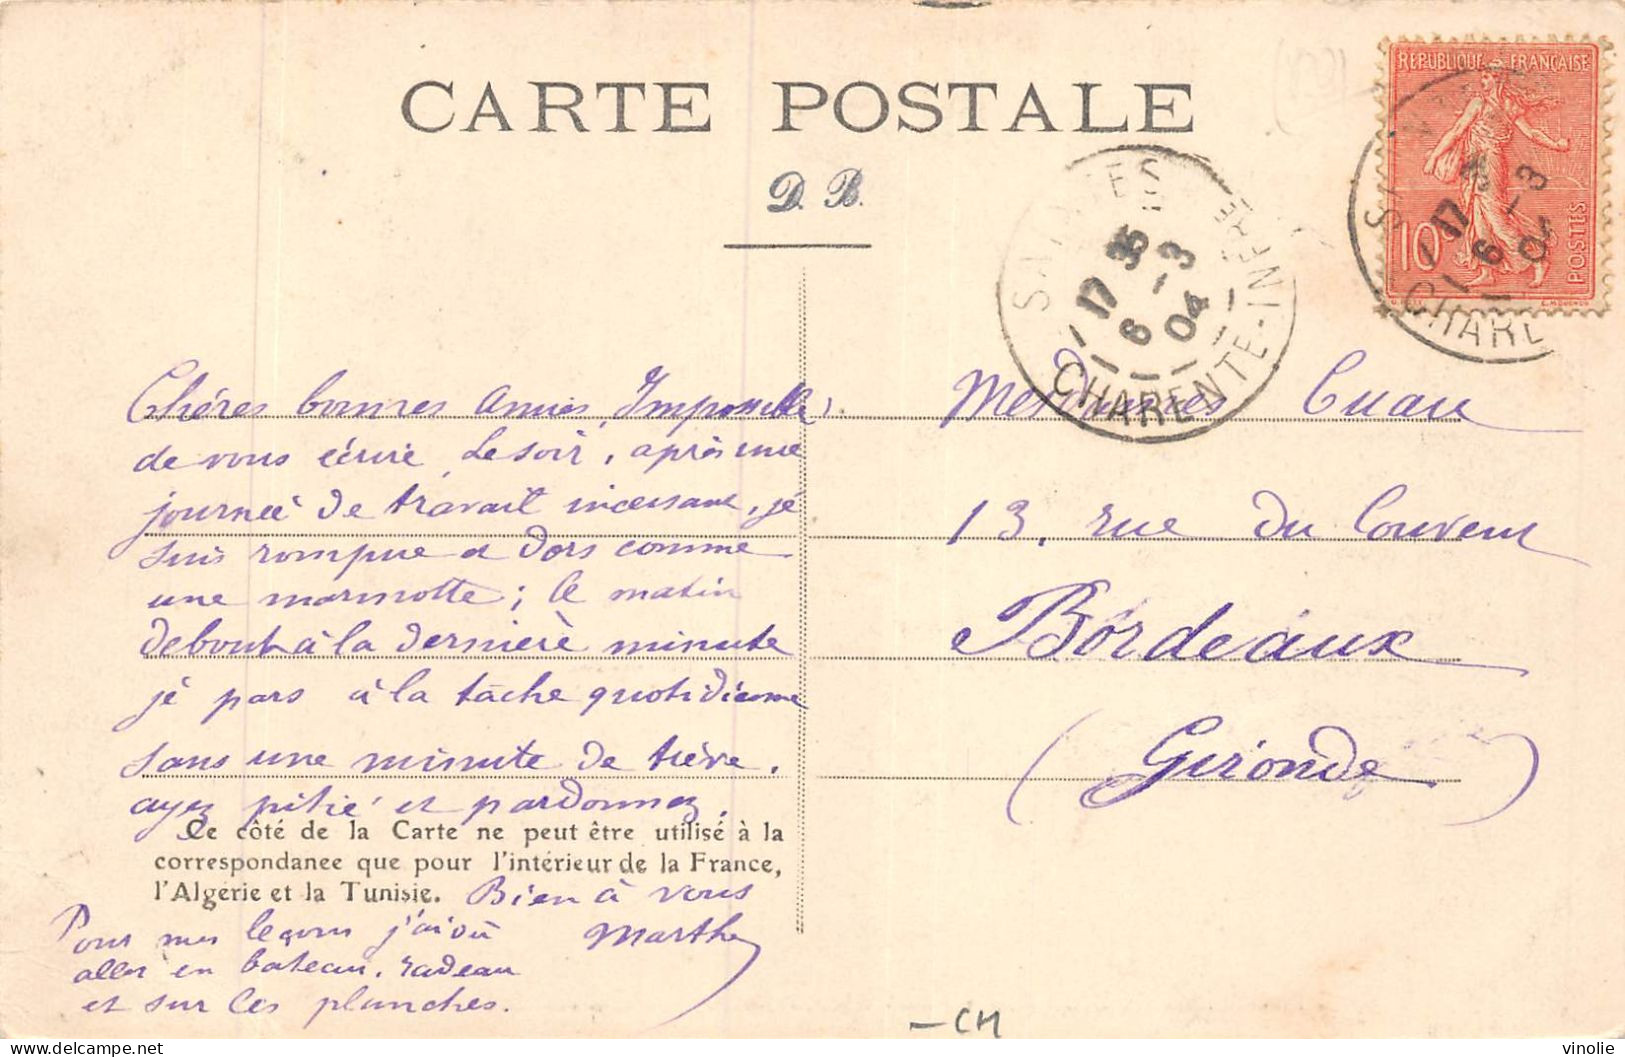 CARTE POSTALE
D. B.
REPUBLIQUE FRANÇAISE
10c
POSTES
SAINTES
17 35
6 -3
04
CHARENTE-INFRE
SAINTES
17
6 -3
04
CHARE
Chéres bonnes Amies, Impossible
de vous écrire Le soir, après une
journeé de travail incessant, jé
suis rompue et dors comme
une marmotte; le matin
debout à la derniérè minute
jé pars à la tâche quotidienne
sans une minute de trève,
ayez pitié et pardonnez.
Ce côté de la Carte ne peut être utilisé à la
correspondance que pour l'intérieur de la France,
l'Algérie et la Tunisie. Bien à vous
Marthe
Pour mes leçons j'ai dû
aller en bateau, radeau
et sur les planches.
Mesdames Cuau
13, rue du Couvent
Bordeaux
(Gironde)
-CM
vinolie